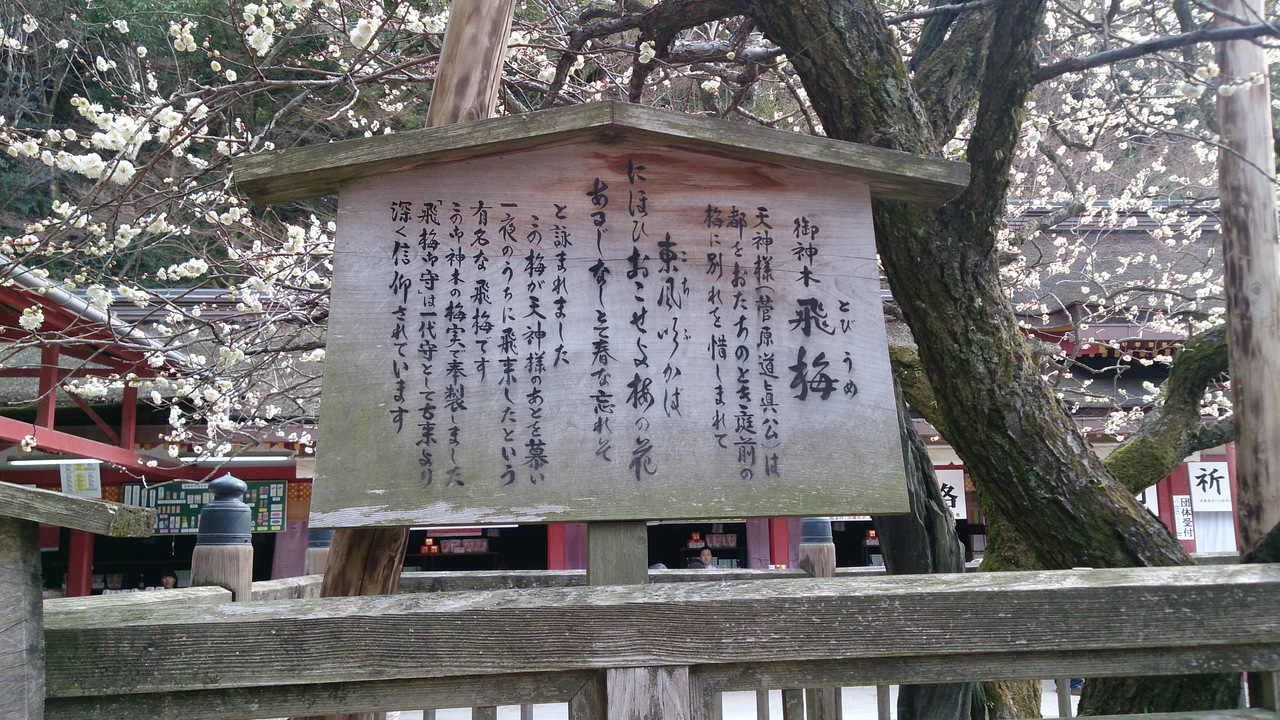 とびうめ
御神木 飛梅
天神様(菅原道真公)は
都をおたちのとき庭前の
梅に別れを惜しまれて
こち ふ
東風吹かは
にほひおこせよ梅の花
あるじなしとて春な忘れそ
と詠まれました
この梅が天神様のあとを慕い
一夜のうちに飛来したという
有名な飛梅です
この御神木の梅実で奉製しました
「飛梅御守」は一代守として古来より
深く信仰されています
祈
団体受付